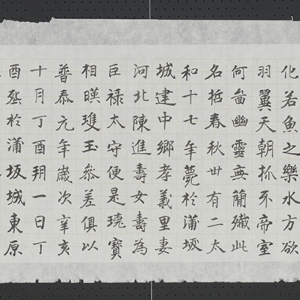 化若魚之樂水方欲
羽翼天朝抓牙帝室
何啚幽靈無簡殲此
名哲春秋丗有二太
和十七年薨於蒲坂
城建中鄉孝義里妻
河北陳進壽女壽為
巨祿太守便是瓌寶
相暎瓊玉參差俱以
普泰元年歲次辛亥
十月丁酉朔一日丁
酉葬於蒲坂城東原